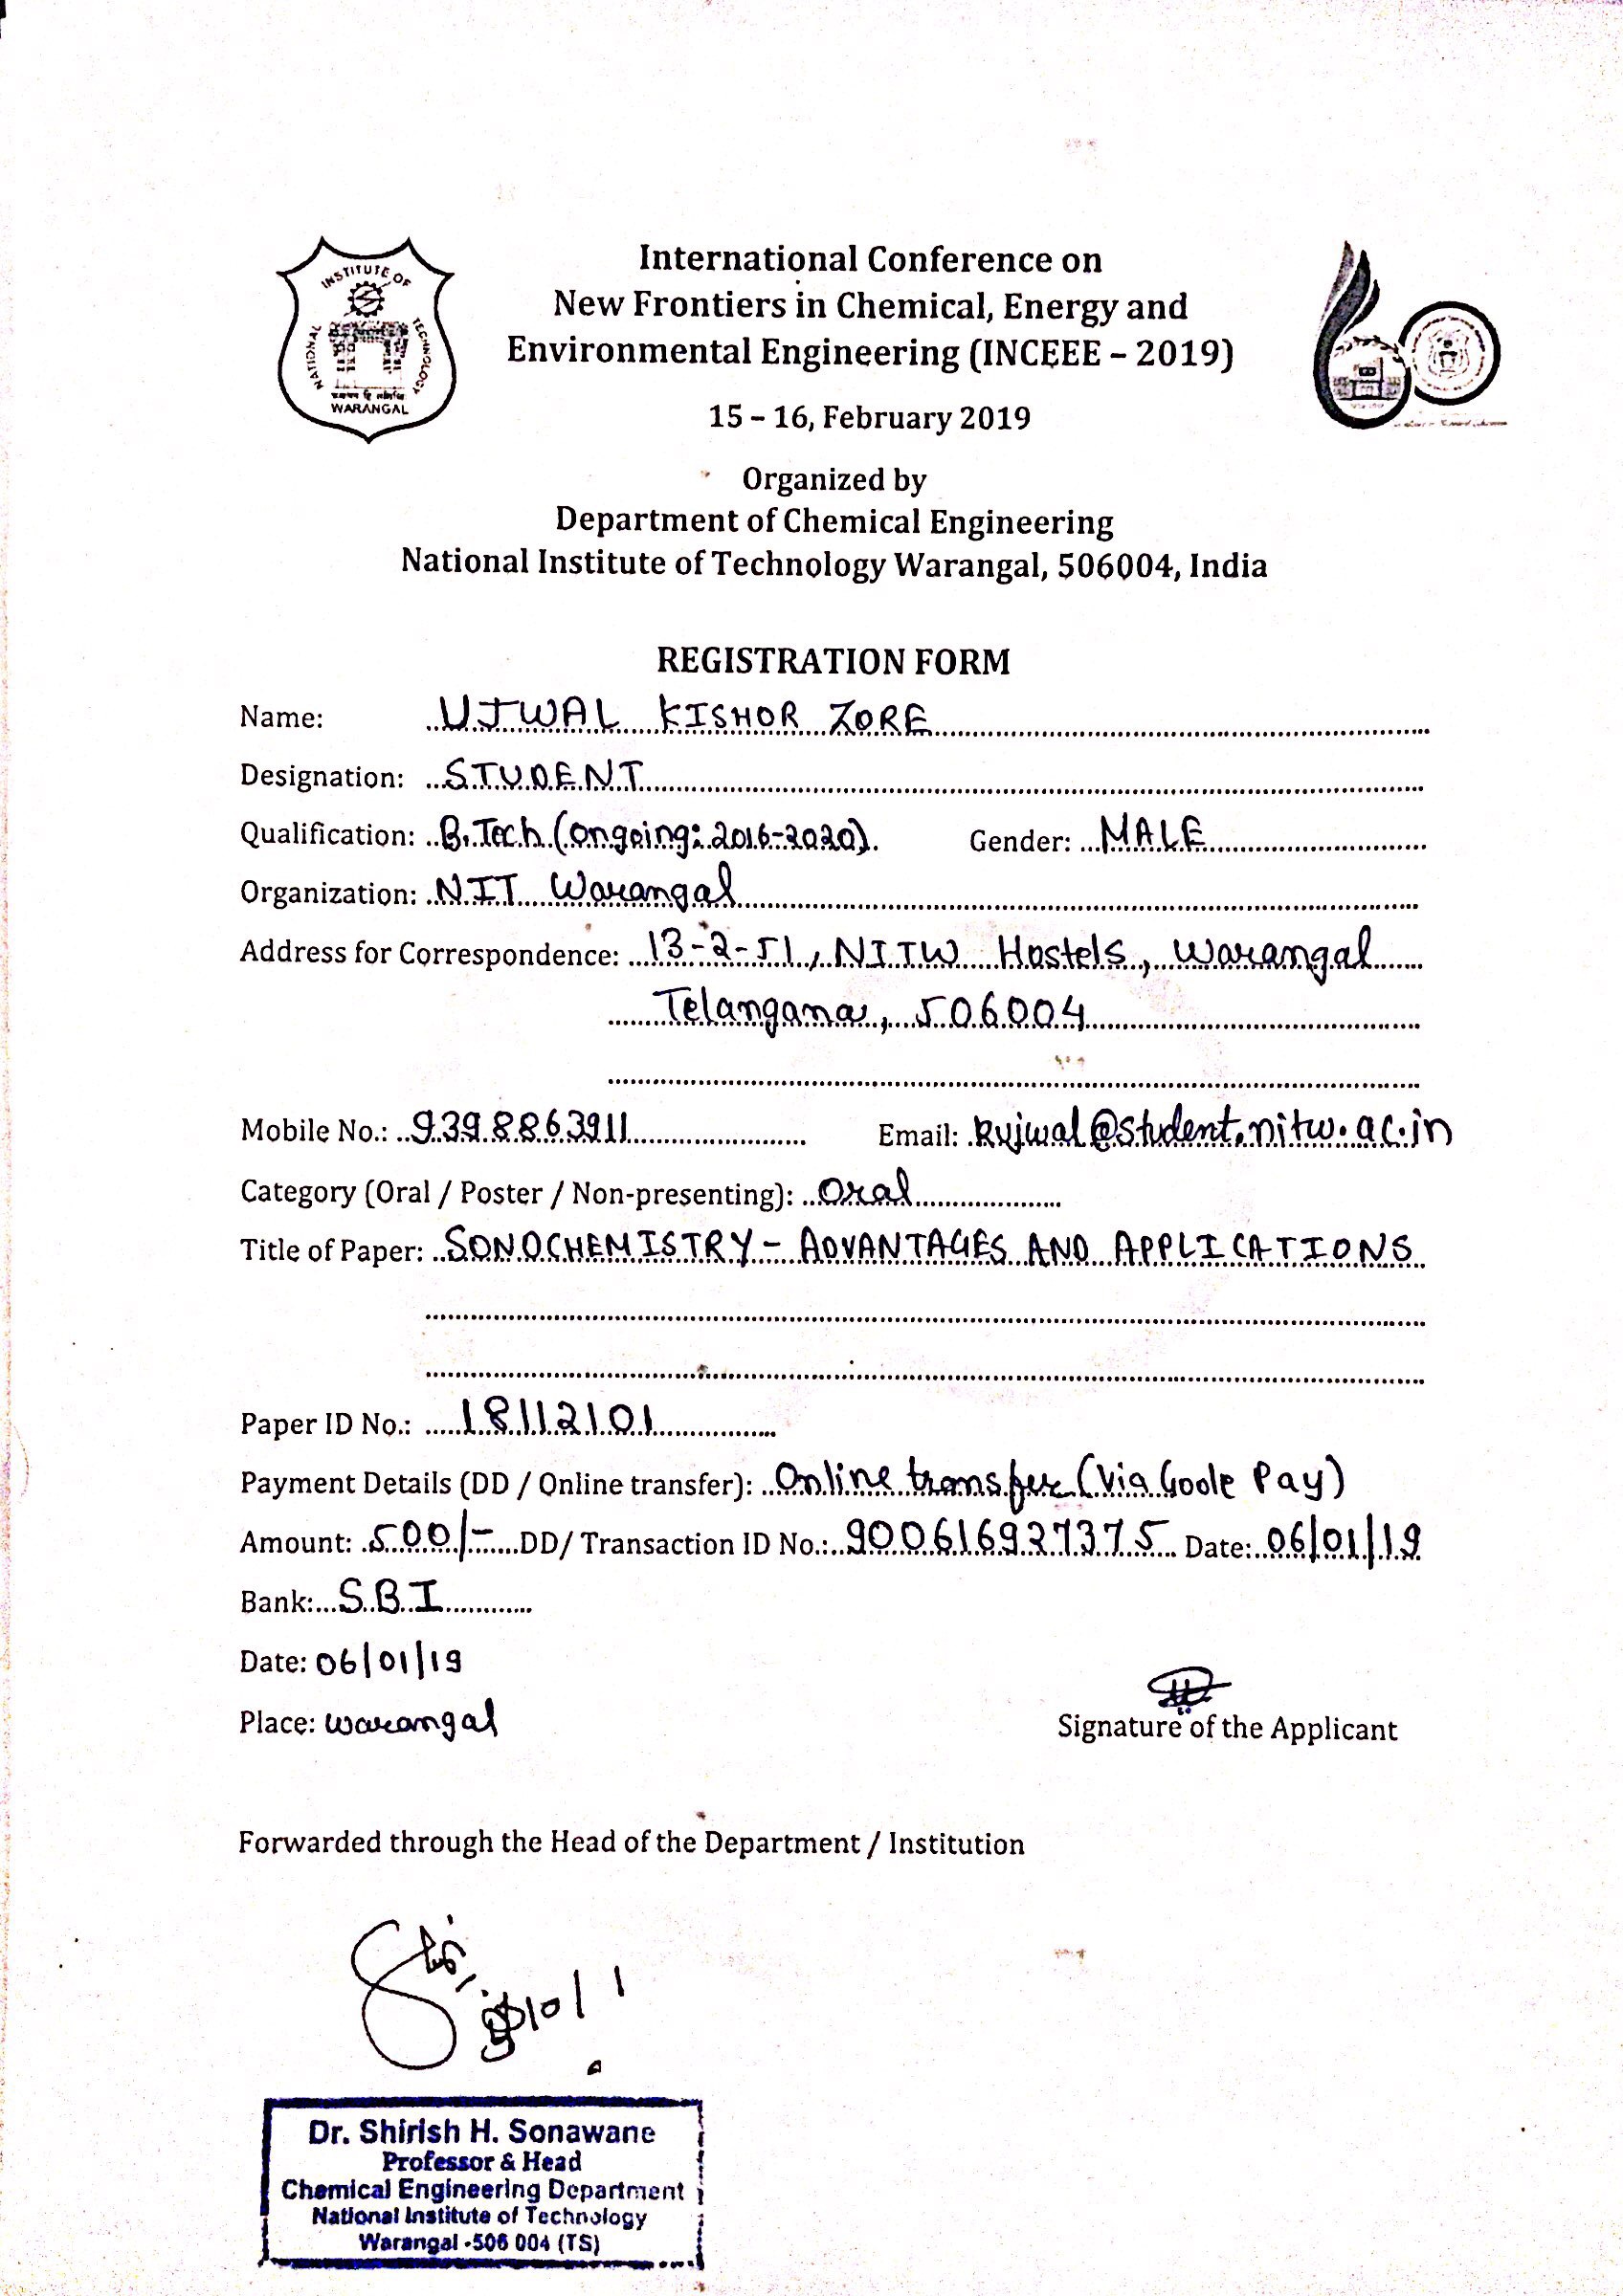 International Conference on
New Frontiers in Chemical, Energy and
Environmental Engineering (INCEEE – 2019)
15 – 16, February 2019
INSTITUTE OF
NATIONAL
TECHNOLOGY
WARANGAL
Organized by
Department of Chemical Engineering
National Institute of Technology Warangal, 506004, India
REGISTRATION FORM
Name: UJWAL KISHOR ZORE
Designation: STUDENT
Qualification: B.Tech (ongoing: 2016-2020). Gender: MALE
Organization: NIT Warangal
Address for Correspondence: 13-2-51, NITW Hostels, Warangal
Telangana, 506004
Mobile No.: 9398863911 Email: kujwal@student.nitw.ac.in
Category (Oral / Poster / Non-presenting): Oral
Title of Paper: SONOCHEMISTRY - ADVANTAGES AND APPLICATIONS
Paper ID No.: 18112101
Payment Details (DD / Online transfer): Online transfer (Via Goole Pay)
Amount: 500/- DD/ Transaction ID No.: 900616927375 Date: 06/01/19
Bank: SBI
Date: 06/01/19
Place: Warangal
Signature of the Applicant
Forwarded through the Head of the Department / Institution
Dr. Shirish H. Sonawane
Professor & Head
Chemical Engineering Department
National Institute of Technology
Warangal -506 004 (TS)